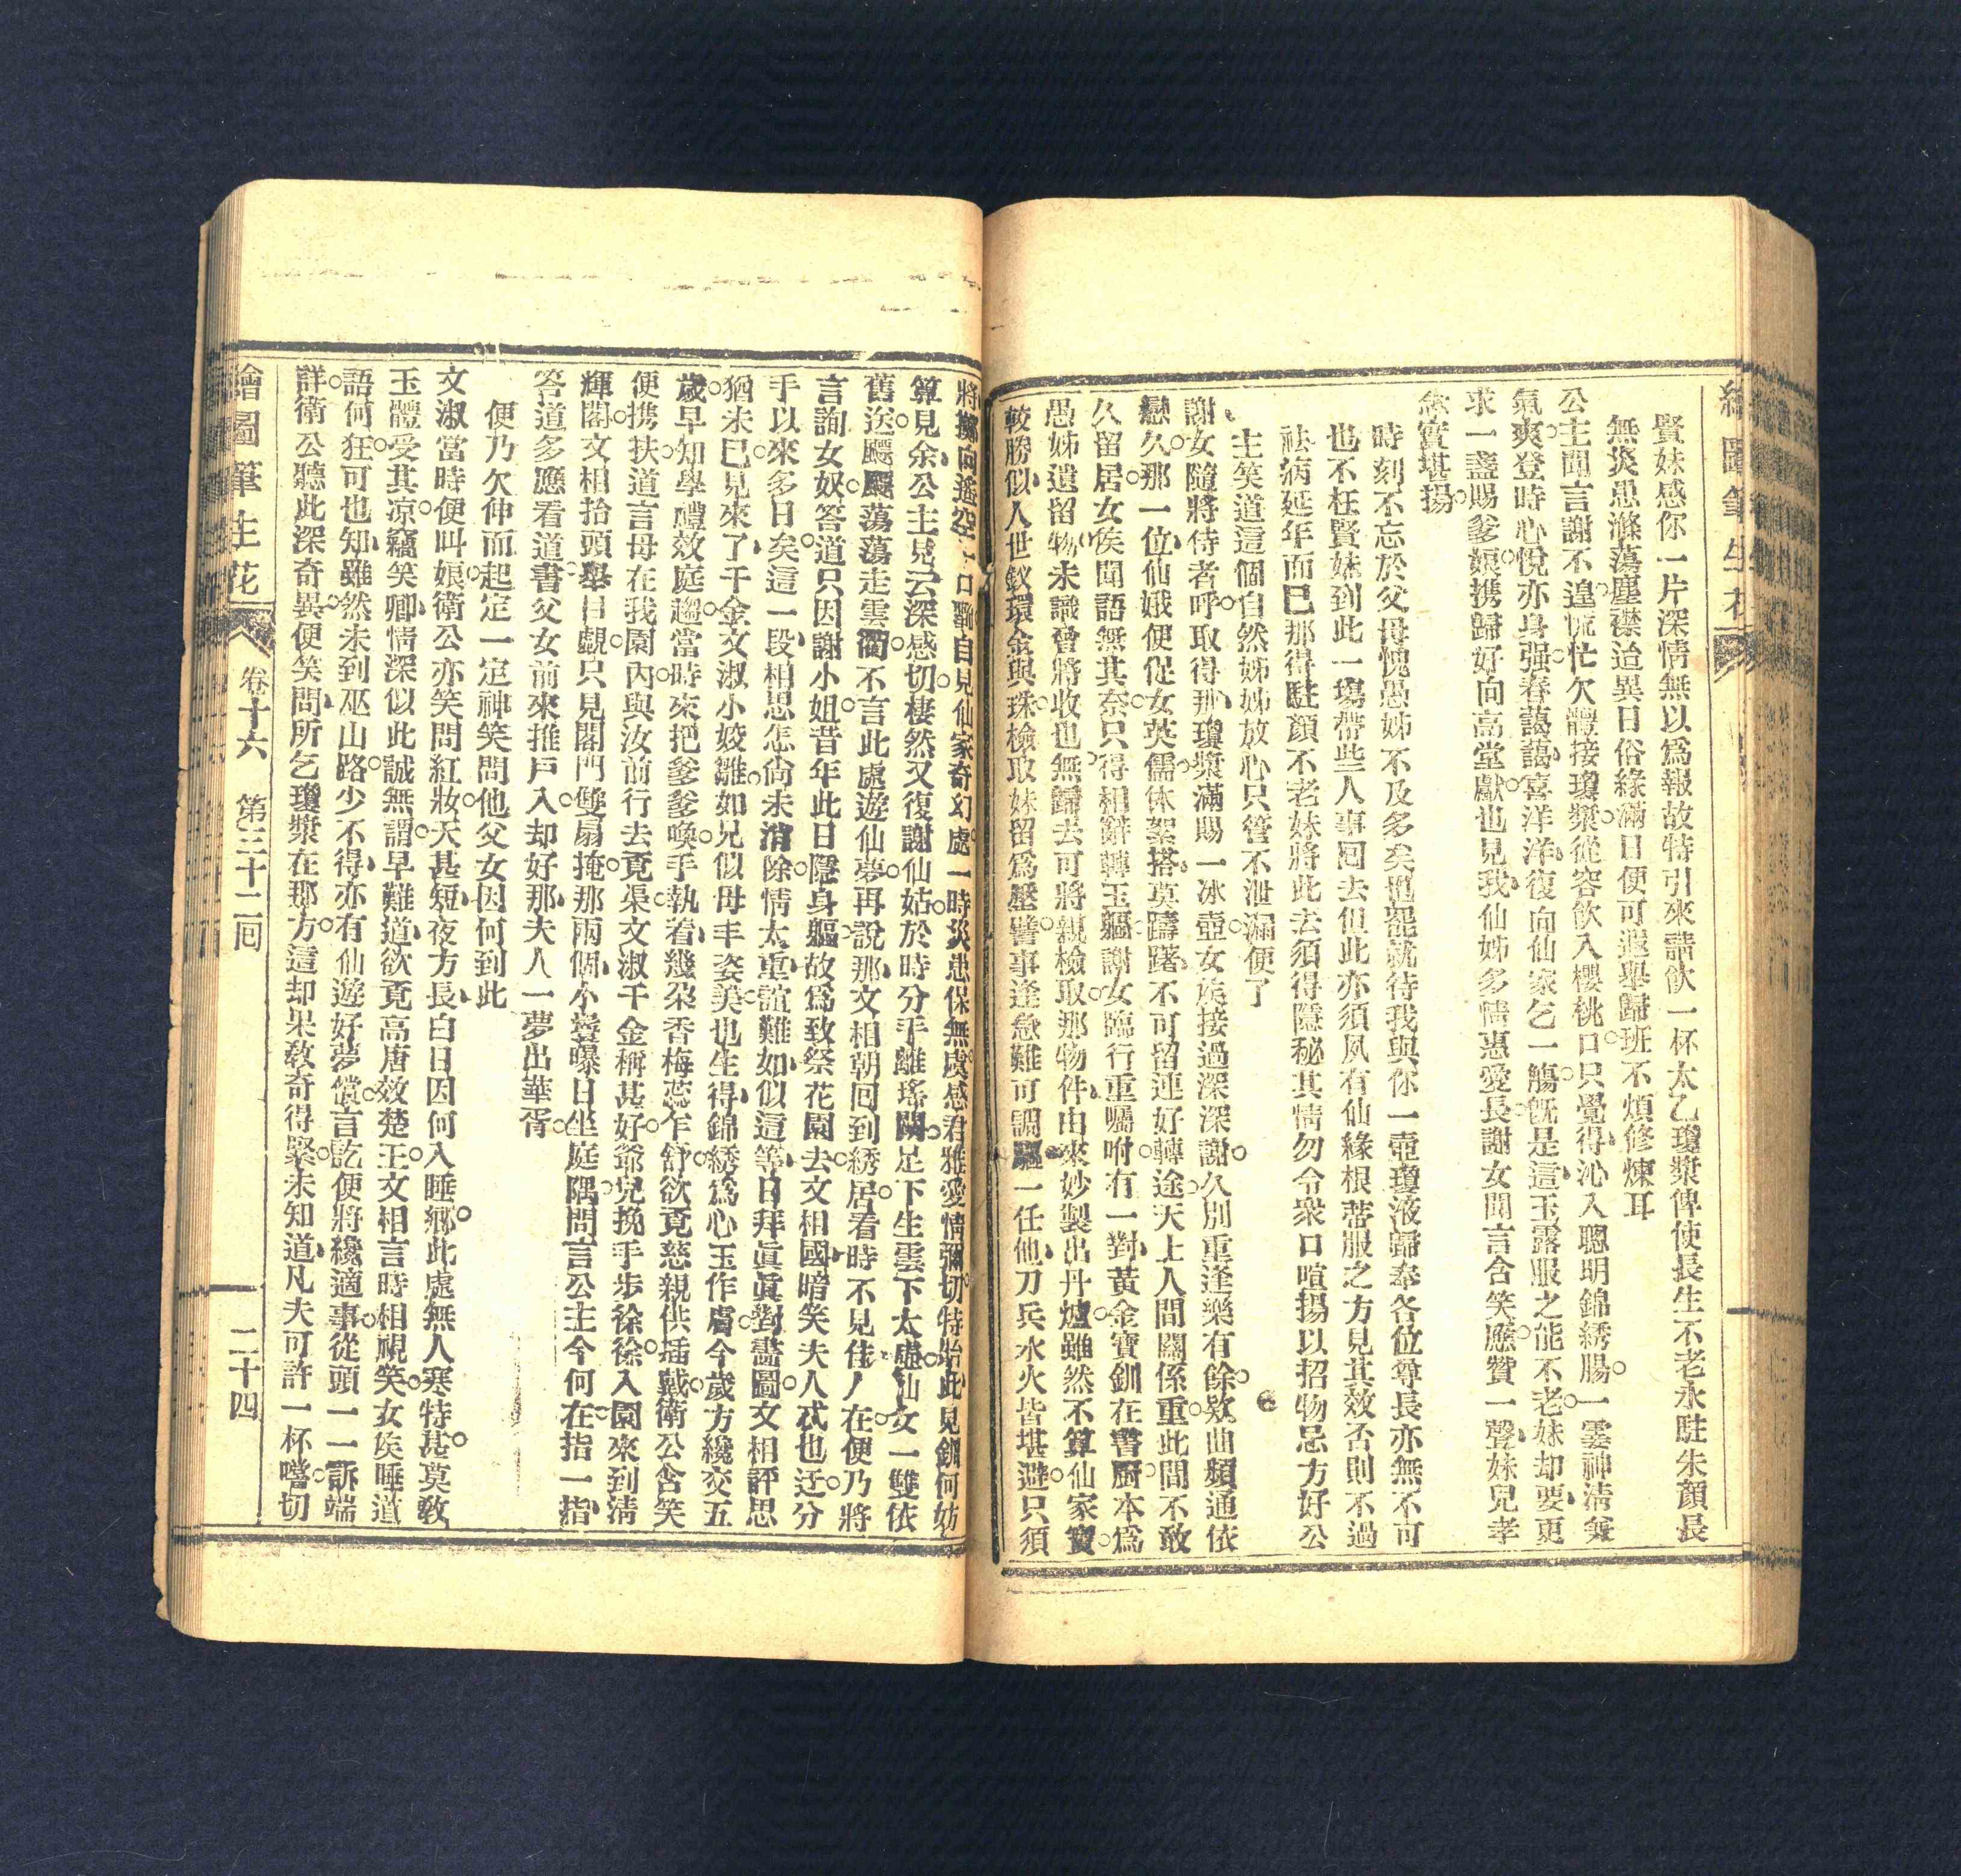 賢妹感你一片深情無以爲報故特引來請飲一杯太乙瓊漿俾使長生不老永駐朱顏長
無災患滌蕩塵襟迨異日俗緣滿日便可遐舉歸班不煩修煉耳
公主聞言謝不遑忙忙欠體接瓊漿從容飲入櫻桃口只覺得沁入聰明錦綉腸一霎神淸兼
氣爽登時心悅亦身强春藹藹喜洋洋復向仙家乞一觴旣是這玉露服之能不老妹却要更
求一盞賜爹娘携歸好向高堂獻也見我仙姊多情惠愛長謝女聞言含笑應贊一聲妹兒孝
念實堪揚
時刻不忘於父母愧愚姊不及多矣也罷就待我與你一壺瓊液歸奉各位尊長亦無不可
也不枉賢妹到此一塲帶些人事囘去但此亦須夙有仙緣根蒂服之方見其效否則不過
袪病延年而已那得駐顏不老妹將此去須得隱秘其情勿令衆口喧揚以招物忌方好公
主笑道這個自然姊姊放心只管不泄漏便了
謝女隨將侍者呼取得那瓊漿滿賜一冰壺女侯接過深深謝久別重逢樂有餘欵曲頻通依
戀久那一位仙娥便促女英儒休絮搭莫躊躇不可留連好轉途天上人間關係重此間不敢
久留居女侯聞語無其奈只得相辭轉玉軀謝女臨行重囑咐有一對黃金寶釧在書厨本爲
愚姊遺留物未識曾將收也無歸去可將親檢取那物件由來妙製出丹爐雖然不算仙家寶
較勝似人世釵環金與珠檢取妹留爲壓 事逢急難可調 一任他刀兵水火皆堪避只須
將擲向遙空 口 自見仙家奇幻處一時災患保無虞感君雅愛情彌切特貽此見釧何妨
算見余公主見云深感切棲然又復謝仙姑於時分手離瑤闕足下生雲下太虛仙女一雙依
舊送飃飃蕩蕩走雲 不言此處遊仙夢再說那文相朝囘到綉居看時不見佳人在便乃將
言詢女奴答道只因謝小姐昔年此日隱身軀故爲致祭花園去文相國暗笑夫人忒也迂分
手以來多日矣這一段相思怎尙未消除情太重誼難如似這等日拜眞眞對畵圖文相評思
猶未已見來了千金文淑小姣雛如兄似母丰姿美也生得錦綉爲心玉作膚今歲方纔交五
歲早知學禮效庭趨當時來把爹爹喚手執着幾朶香梅蕊乍舒欲覓慈親供插戴衛公含笑
便携扶道言母在我園內與汝前行去覓渠文淑千金稱甚好爺兒挽手步徐徐入園來到淸
輝閣文相抬頭舉目覷只見閣門雙扇掩那兩個小鬟曝日坐庭隅問言公主今何在指一指
答道多應看道書父女前來推戶入却好那夫人一夢出華胥
便乃欠伸而起定一定神笑問他父女因何到此
文淑當時便叫娘衛公亦笑問紅妝天甚短夜方長白日因何入睡鄉此處無人寒特甚莫敎
玉體受其凉竊笑卿情深似此誠無謂早難道欲覓高唐效楚王文相言時相視笑女侯睡道
語何狂可也知雖然未到巫山路少不得亦有仙遊好夢償言訖便將纔適事從頭一一訴端
詳衛公聽此深奇異便笑問所乞瓊漿在那方這却果敎奇得緊未知道凡夫可許一杯嚐切
繪圖筆生花 卷十六 第三十二囘 二十四